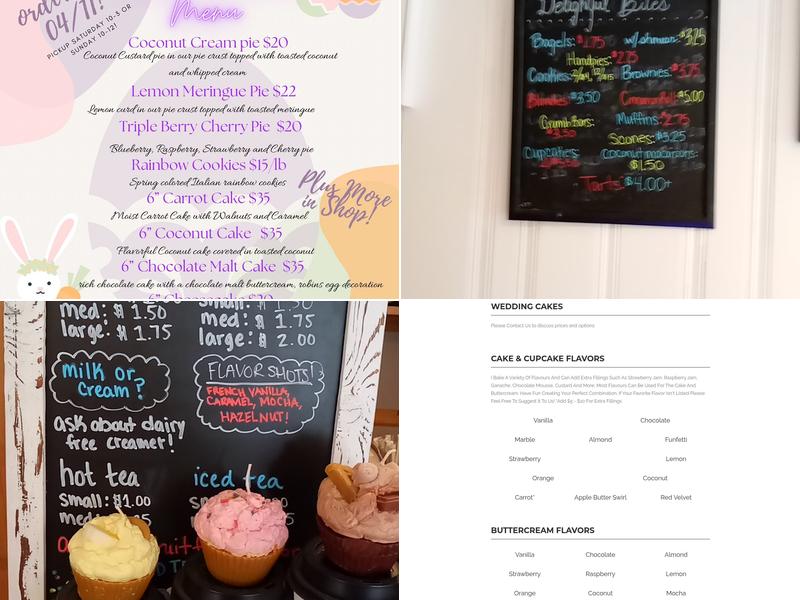 order
04/11!
PICKUP SATURDAY 10-5 OR
SUNDAY 10-12!
Menu
Coconut Cream pie $20
Coconut Custard pie in our pie crust topped with toasted coconut
and whipped cream
Lemon Meringue Pie $22
Lemon curd in our pie crust topped with toasted meringue
Triple Berry Cherry Pie $20
Blueberry, Raspberry, Strawberry and Cherry pie
Rainbow Cookies $15/lb
Spring colored Italian rainbow cookies
Plus More
in Shop!
6” Carrot Cake $35
Moist Carrot Cake with Walnuts and Caramel
6” Coconut Cake $35
Flavorful Coconut cake covered in toasted coconut
6” Chocolate Malt Cake $35
rich chocolate cake with a chocolate malt buttercream, robins egg decoration
6” Cheesecake $20
Delightful Bites
Bagels: $1.75 w/shmear: $3.25
Handpies: $2.75
Cookies: Brownies: $3.75
Blondies: $3.50 Cinnamon Roll: $5.00
Crumb Bars: $3.50 Muffins: $2.75
Scones: $3.25
Cupcakes: Coconut macaroons: $1.50
Tarts: $4.00+
med: $1.50
large: $1.75
small: $1.50
med: $1.75
large: $2.00
milk or
cream?
FLAVOR SHOTS!
FRENCH VANILLA,
CARAMEL, MOCHA,
HAZELNUT!
ask about dairy
free creamer!
hot tea
small: $1.00
iced tea
WEDDING CAKES
Please Contact Us to discuss prices and options
CAKE & CUPCAKE FLAVORS
I Bake A Variety Of Flavours And Can Add Extra Fillings Such As Strawberry Jam, Raspberry Jam,
Ganache, Chocolate Mousse, Custard And More. Most Flavours Can Be Used For The Cake And
Buttercream. Have Fun Creating Your Perfect Combination. If Your Favorite Flavor Isn't Listed Please
Feel Free To Suggest It To Us! *Add $5 - $10 For Extra Fillings
Vanilla Chocolate
Marble Almond Funfetti
Strawberry Lemon
Orange Coconut
Carrot* Apple Butter Swirl Red Velvet
BUTTERCREAM FLAVORS
Vanilla Chocolate Almond
Strawberry Raspberry Lemon
Orange Coconut Mocha